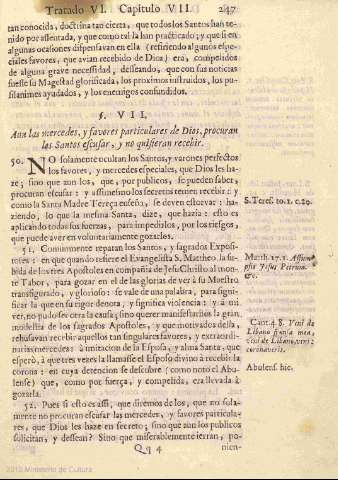 Tratado VI. Capitulo VII. 247
tan conocida, doctrina tan cierta, que todos los Santos han te-
nido por assentada, y que como tal la han practicado; y que si en
algunas ocasiones dispensavan en ella (refiriendo algunos espe-
ciales favores, que avian recebido de Dios) era, compelidos
de alguna grave necessidad, desseando, que con sus noticias
fuesse su Magestad glorificada, los proximos instruidos, los pu-
silanimes ayudados, y los enemigos confundidos.
§. VII.
Aun las mercedes, y favores particulares de Dios, procuran
los Santos escusar, y no quisieran recebir.
50. NO solamente ocultan los Santos, y varones perfectos
los favores, y mercedes especiales, que Dios les ha-
ze; sino que aun los, que, por publicos, se pueden saber,
procuran escusar: y assi mesmo los secretos temen recibir: y
como la Santa Madre Teresa enseña, se deven estorvar: ha-
ziendo, lo que la mesma Santa, dize, que hazia: esto es
aplicando todas sus fuerzas, para impedirlos, por los riesgos,
que puede aver en voluntariamente gozarles.
S. Teres. to. 1. c. 29.
51. Comunmente reparan los Santos, y sagrados Expo-
tores: en que quando refiere el Evangelista S. Mattheo la su-
bida de los tres Apostoles en compañia de Jesu Christo al mon-
te Tabor, para gozar en el de las glorias de ver à su Maestro
transfigurado, y glorioso: se vale de una palabra, para signi-
ficar la que en su rigor denota, y significa violencia: y à mi
ver, no pudo ser otra la causa; sino querer manifestarnos la gran
modestia de los sagrados Apostoles, y que motivados della,
rehusavan recibir aquellos tan singulares favores, y extraordi-
narias mercedes: à imitacion de la Esposa, y alma Santa, que
esperò, à que tres vezes la llamasse el Esposo divino à recebir la
corona: en cuya detencion se descubre (como notò el Abu-
lense) que, como por fuerça, y compelida, era llevada à
gozarla.
Matth. 17. 1. Assum-
psit Jesus Petrum
&c.
Cant. 4. 8. Veni de
Libano sponsa mea,
veni de Libano, veni:
coronaveris.
Abulens. hic.
52. Pues si esto es assi, què diremos de los, que no sola-
mente no procuran escusar las mercedes, y favores particula-
res, que Dios les haze en secreto; sino que aun los publicos
solicitan, y dessean? Sino que miserablemente ierran, po-
Qq 4 nien-
2010 Ministerio de Cultura